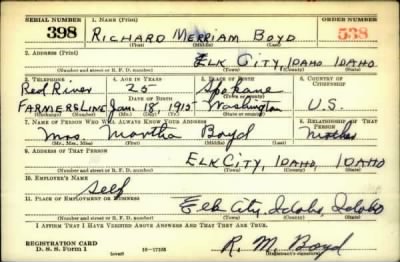 SERIAL NUMBER 1. NAME (Print) ORDER NUMBER
398 RICHARD MERRIAM BOYD 538
(First) (Middle) (Last)
2. ADDRESS (Print)
ELK CITY, IDAHO IDAHO
(Number and street or R. F. D. number) (Town) (County) (State)
3. TELEPHONE 4. AGE IN YEARS 5. PLACE OF BIRTH 6. COUNTRY OF CITIZENSHIP
Red River 25 Spokane
DATE OF BIRTH
FARMERS LINE Jan. 18, 1915 Washington U.S.
7. NAME OF PERSON WHO WILL ALWAYS KNOW YOUR ADDRESS 8. RELATIONSHIP OF THAT PERSON
Mrs. Martha Boyd Mother
(Mr., Mrs., Miss) (First) (Middle) (Last)
9. ADDRESS OF THAT PERSON
ELK CITY, IDAHO, IDAHO
(Number and street or R. F. D. number) (Town) (County) (State)
10. EMPLOYER'S NAME
Self
11. PLACE OF EMPLOYMENT OR BUSINESS
Elk City, Idaho, Idaho
(Number and street or R. F. D. number) (Town) (County) (State)
I AFFIRM THAT I HAVE VERIFIED ABOVE ANSWERS AND THAT THEY ARE TRUE.
REGISTRATION CARD
D. S. S. Form 1 16-17105 R. M. Boyd
(Registrant's signature)